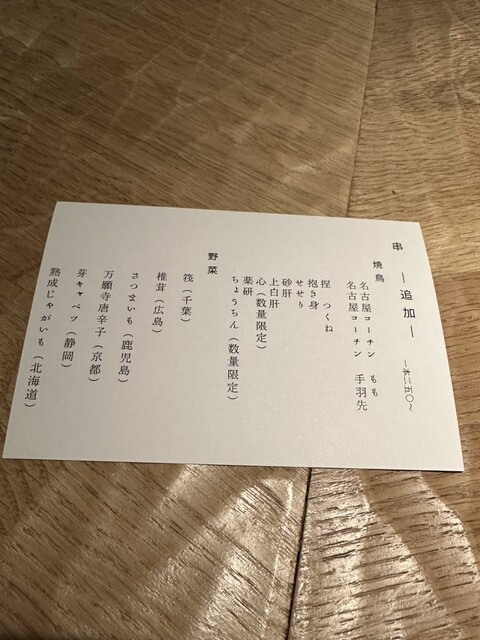 串 ―追加― 一本二五〇〜
焼鳥
名古屋コーチン もも
名古屋コーチン 手羽先
捏 つくね
抱き身
せせり
砂肝
上白肝
心（数量限定）
薬研
ちょうちん（数量限定）
野菜
筏（千葉）
椎茸（広島）
さつまいも（鹿児島）
万願寺唐辛子（京都）
芽キャベツ（静岡）
熟成じゃがいも（北海道）